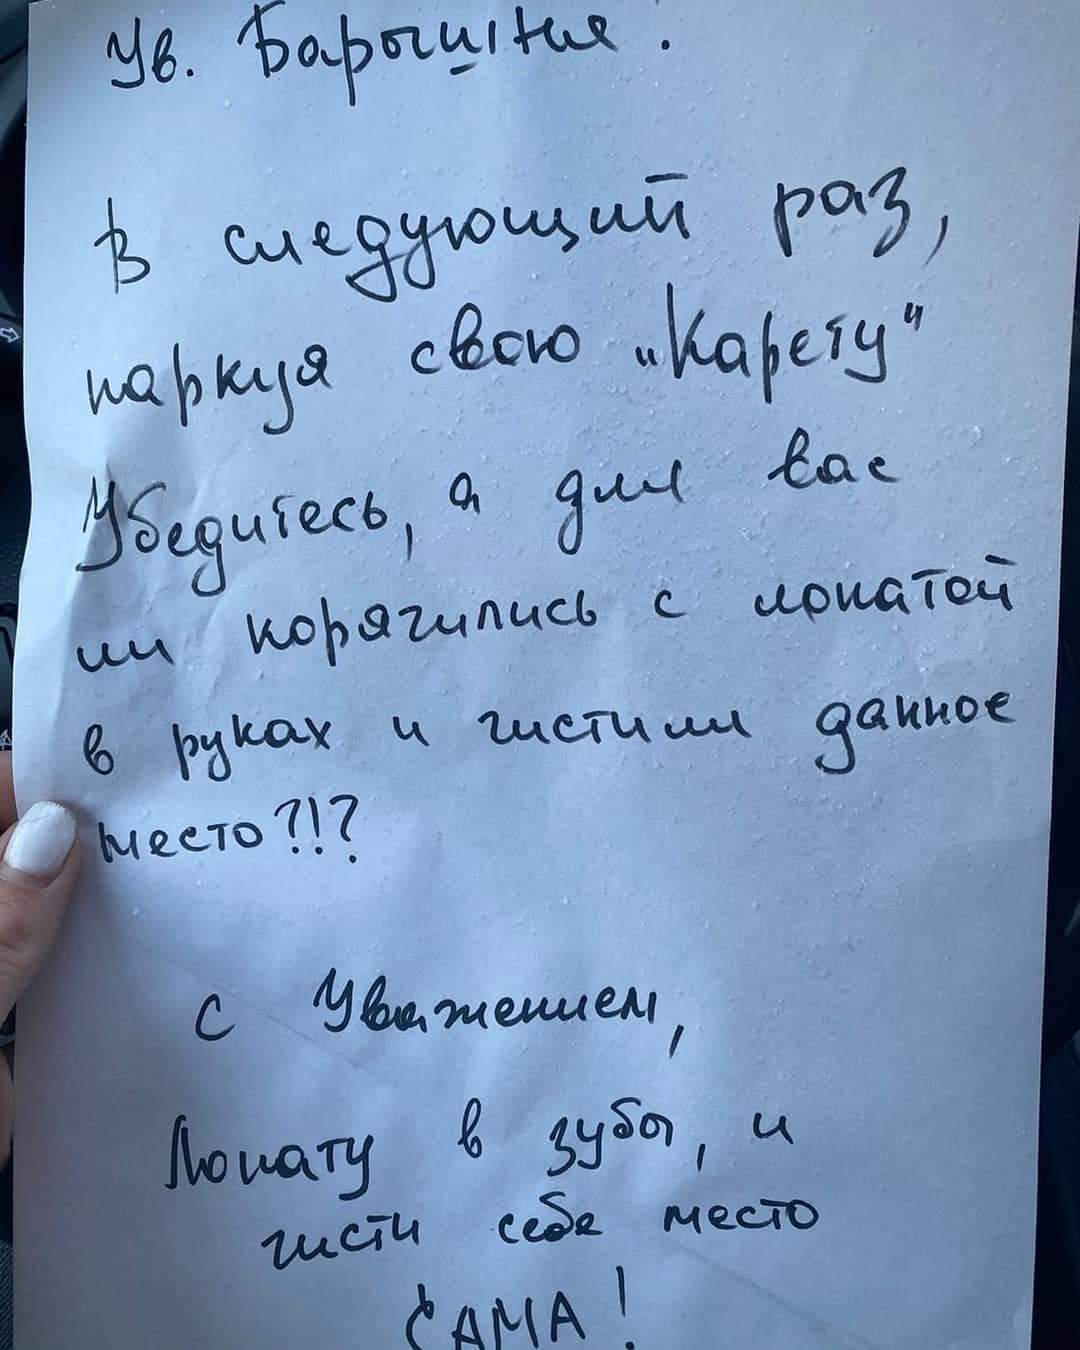 Ув. Барышня.
В следующий раз,
паркуя свою „Карету"
Убедитесь, а для вас
ли корячились с лопатой
в руках и чистили данное
место?!?
с Уважением,
Лопату в зубы, и
чисти себе место
САМА!